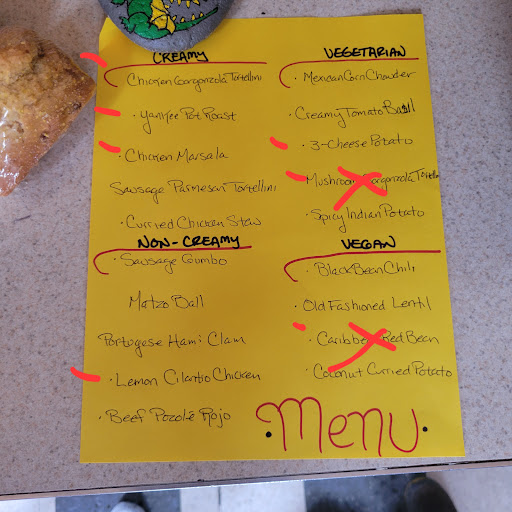 CREAMY
Chicken Gorgonzola Tortellini
• Yankee Pot Roast
• Chicken Marsala
Sausage Parmesan Tortellini
• Curried Chicken Stew
NON-CREAMY
• Sausage Gumbo
Matzo Ball
Portugese Ham i Clam
• Lemon Cilantro Chicken
• Beef Pozolé Rojo
VEGETARIAN
• Mexican Corn Chowder
• Creamy Tomato Basil
• 3-Cheese Potato
• Mushroom Gorgonzola Tortellini
• Spicy Indian Potato
VEGAN
• Black Bean Chili
• Old Fashioned Lentil
• Caribbean Red Bean
• Coconut Curried Potato
• Menu •